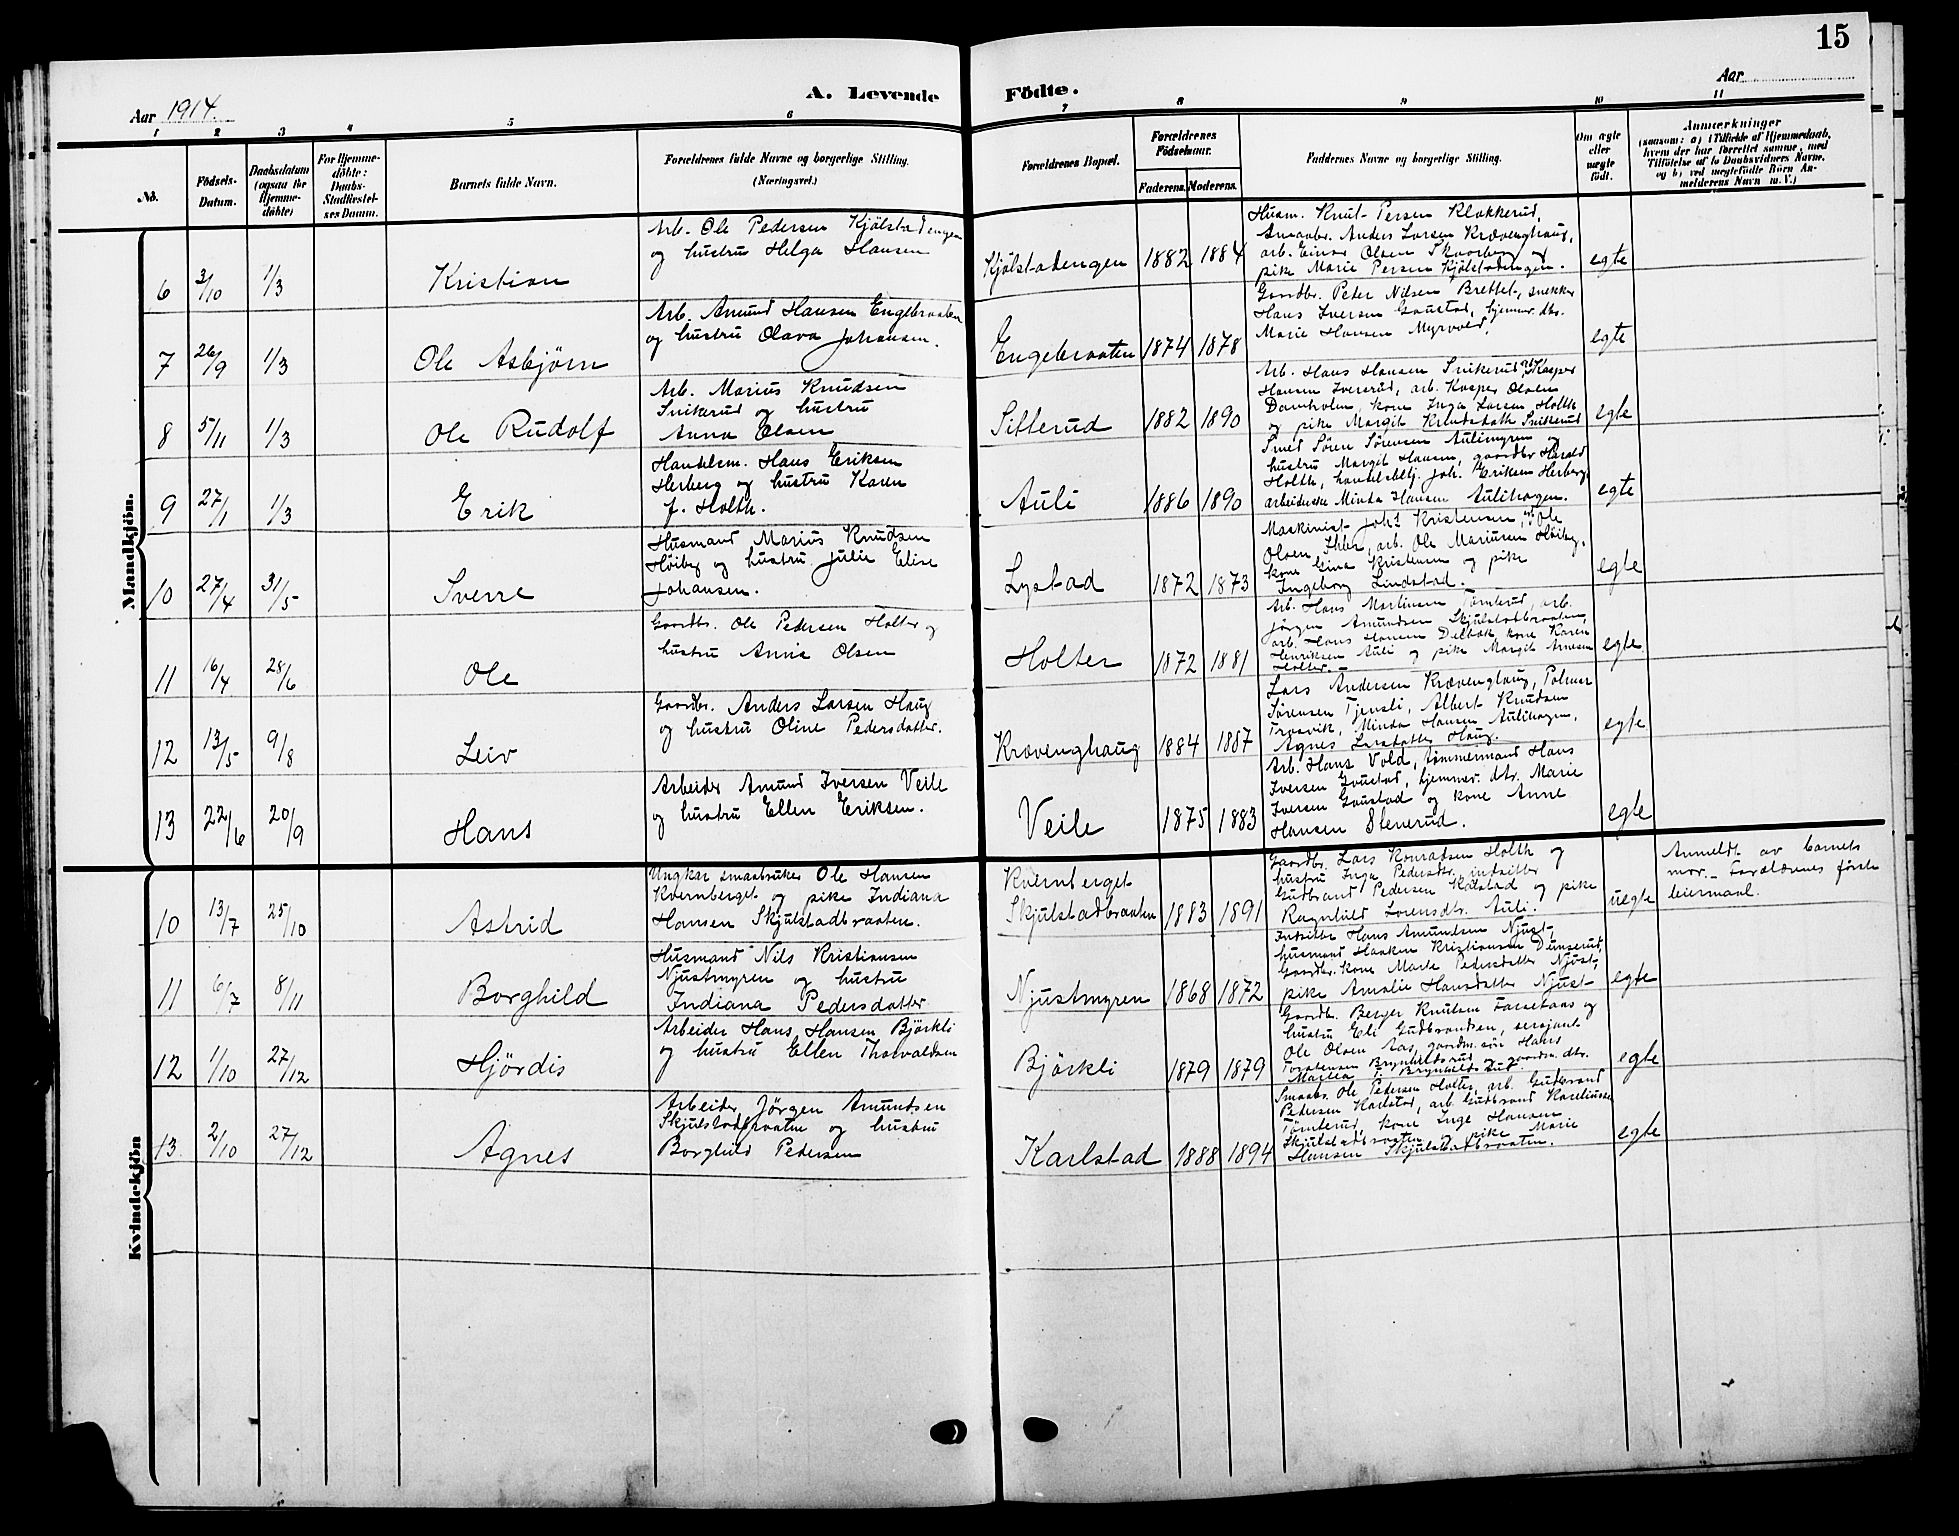 15
Aar 1914.
A. Levende Födte.
Aar
1 2 3 4 5 6 7 8 9 10 11
No.
Födsels-Datum.
Daabsdatum (ogsaa for Hjemme-döbte)
For Hjemme-döbte: Daabs-Stadfæstel-ses Datum.
Barnets fulde Navn.
Forældrenes fulde Navne og borgerlige Stilling. (Næringsvei.)
Forældrenes Bopæl.
Forældrenes Födselsaar.
Faderens. Moderens.
Faddernes Navne og borgerlige Stilling.
Om ægte eller uægte födt.
Anmærkninger
(saasom: a) i Tilfælde af Hjemmedaab,
hvem der har forrettet samme, med
Tilföielse af to Daabsvidners Navne,
og b) ved uægtefödte Börn An-
melderens Navn m. V.)
Mandkjön.
6 3/10 1/3 Kristian
Arb. Ole Pedersen Kjölstadengen
og hustru Helga Hansen
Kjölstadengen 1882 1884
Husm. Knut Persen Klokkerud,
Smaabr. Anders Larsen Krævenghaug,
arb. Einar Olsen Skaarberg og
pike Marie Persen Kjölstadengen.
egte
7 26/9 1/3 Ole Asbjörn
Arb. Amund Hansen Engebraaten
og hustru Olava Johansen.
Engebraaten 1874 1878
Gaardbr. Peter Nilsen Brettet, snekker
Hans Iversen Gaustad, hjemmev. dtr.
Marie Hansen Myrvold.
egte
8 5/11 1/3 Ole Rudolf
Arb. Marius Knudsen
Snikerud og hustru
Anna Olsen
Sitterud 1882 1890
Arb. Hans Hansen Snikerud, arb. Kasper
Hansen Ivererud, arb. Kasper Olsen
Damholen, kone Inga Larsen Holth
og pike Margit Knudsdatt. Snikerud
egte
9 27/1 1/3 Erik
Handelsm. Hans Eriksen
Herberg og hustru Karen
f. Holth.
Auli 1886 1890
Smed Sören Sörensen Aulimyren og
hustru Margit Hansen, gaardbr. Harald
Holth, handelsbetj. Joh. Eriksen Herberg,
arbeiderske Minda Hansen Aulihagen.
egte
10 27/4 31/5 Sverre
Husmand Marius Knudsen
Höiby og hustru Julie Elise
Johansen.
Lystad 1872 1873
Maskinist Joh. Kristensen, Ole
Olsen Ihler, arb. Ole Mariusen Höiby,
kone Gina Kristensen og pike
Ingeborg Lindstad.
egte
11 16/4 28/6 Ole
Gaardbr. Ole Pedersen Holter og
hustru Anna Olsen
Holter 1872 1881
Arb. Hans Martinsen Tömterud, arb.
Jörgen Amundsen Skjulstadbraaten,
arb. Hans Hansen Delbak, kone Karen
Henriksen Auli og pike Margit Arnesen
Holter.
egte
12 13/5 9/8 Leiv
Gaardbr. Anders Larsen Haug
og hustru Oline Pedersdatter.
Krævenghaug 1884 1887
Lars Andersen Krævenghaug, Palmer
Sörensen Tjensli, Albert Knudsen
Trosvik, Minda Hansen Aulihagen,
Agnes Larsdatter Haug.
egte
13 22/6 20/9 Hans
Arbeider Amund Iversen Veile
og hustru Ellen Eriksen.
Veile 1875 1883
Arb. Hans Vold, tömmermand Hans
Iversen Gaustad, hjemmev. dtr. Marie
Iversen Gaustad og kone Anne
Hansen Stenerud.
egte
Kvindekjön
10 13/7 25/10 Astrid
Ungkar smaabruker Ole Hansen
Kvernberget og pike Indiana
Hansen Skjulstadbraaten.
Kvernberget
Skjulstadbraaten 1883 1891
Gaardbr. Lars Konradsen Holth og
hustru Inga Pedersdtr., indsitter
Gudbrand Pedersen Kalstad og pike
Ragnhild Lorensdtr. Auli.
uegte
Anmeldt av barnets
mor. Forældrenes förste
leiermaal.
11 6/7 8/11 Borghild
Husmand Nils Kristiansen
Njustmyren og hustru
Indiana Pedersdatter
Njustmyren 1868 1872
Indsitter Hans Amundsen Njust,
husmand Haaken Kristiansen Dunserud,
Gaardbr. kone Marte Pedersdatter Njust,
pike Amalie Hansdatter Njust
egte
12 1/10 27/12 Hjördis
Arbeider Hans Hansen Björkli
og hustru Ellen Thorvaldsen
Björkli 1879 1879
Gaardbr. Berger Knutsen Farsetaas og
hustru Eli Gudbrandsen, sersjant
Ole Olsen Aas, gaardm. sön Hans
Torstensen Brynhildsrud og gaardm. dtr.
Martea T. Brynhildsrud.
egte
13 2/10 27/12 Agnes
Arbeider Jörgen Amundsen
Skjulstadbraaten og hustru
Borghild Pedersen
Karlstad 1888 1894
Smaabr. Ole Pedersen Holter, arb. Gudbrand
Pedersen Karlstad, arb. Gudbrand Karelius
Tömterud, kone Inge Hansen
Skjulstadbraaten og pike Marie
Hansen Skjulstadbraaten.
egte